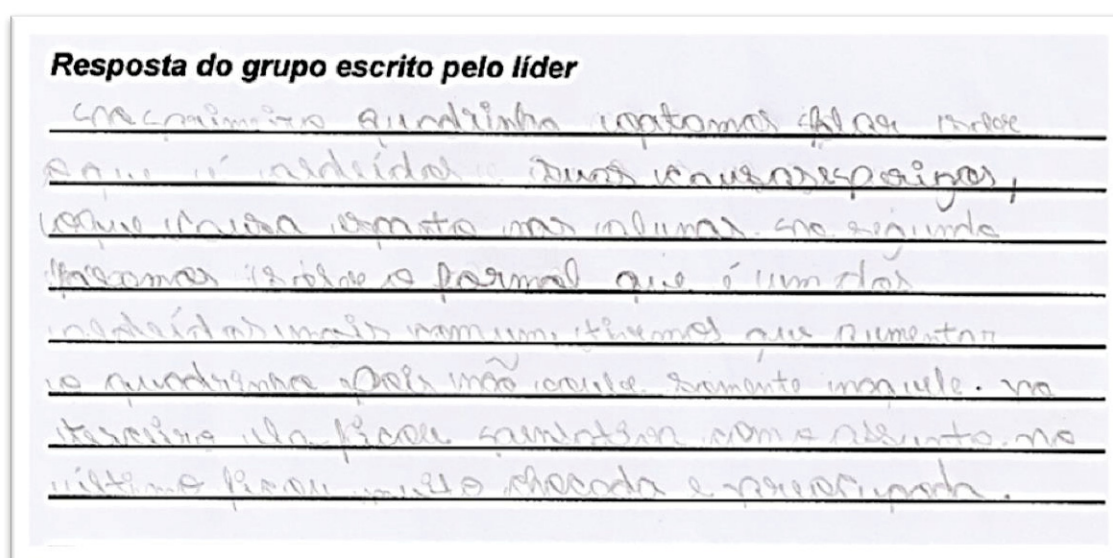 Resposta do grupo escrito pelo líder
no primeiro quadrinho optamos falar sobre
o que é aldeídos suas causas e perigos,
o que causa espanto nas alunas. no segundo
falamos sobre o formol que é um dos
aldeídos mais comum, tivemos que aumentar
o quadrinho pois não coube somente naquele. no
terceiro ela ficou com o assunto. no
último ficou muito chocada e preocupada.